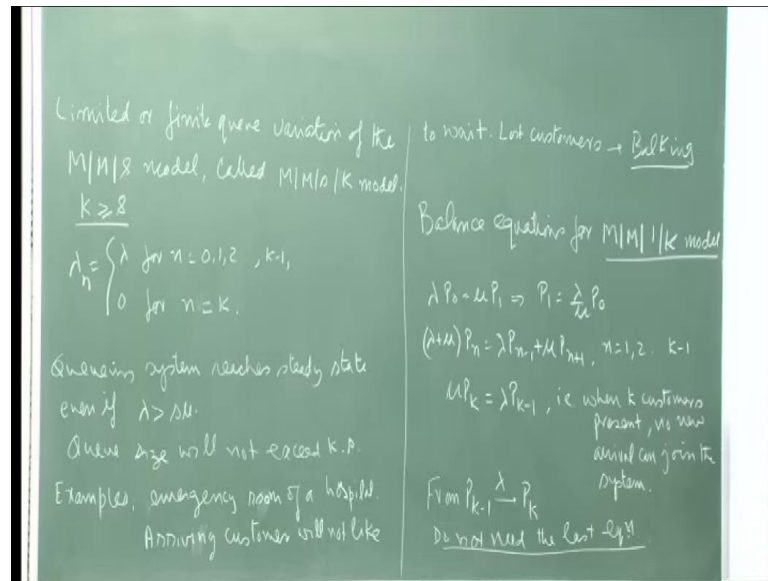 Limited or finite queue variation of the
M|M|s model, called M|M|s|K model.
K ⩾ s
λn = { λ for n = 0,1,2 , k-1,
0 for n = K.
Queueing system reaches steady state
even if λ > sμ.
Queue size will not exceed K-s.
Examples, emergency room of a hospital.
Arriving customer will not like
to wait. Lost customers → Balking
Balance equations for M|M|1|K model
λP0 = μP1 ⇒ P1 = λ/μ P0
(λ+μ)Pn = λPn-1 + μPn+1, n=1,2. k-1
μPk = λPk-1, ie when k customers
present, no new
arrival can join the
system.
From Pk-1 λ→ Pk
Do not need the last eqn